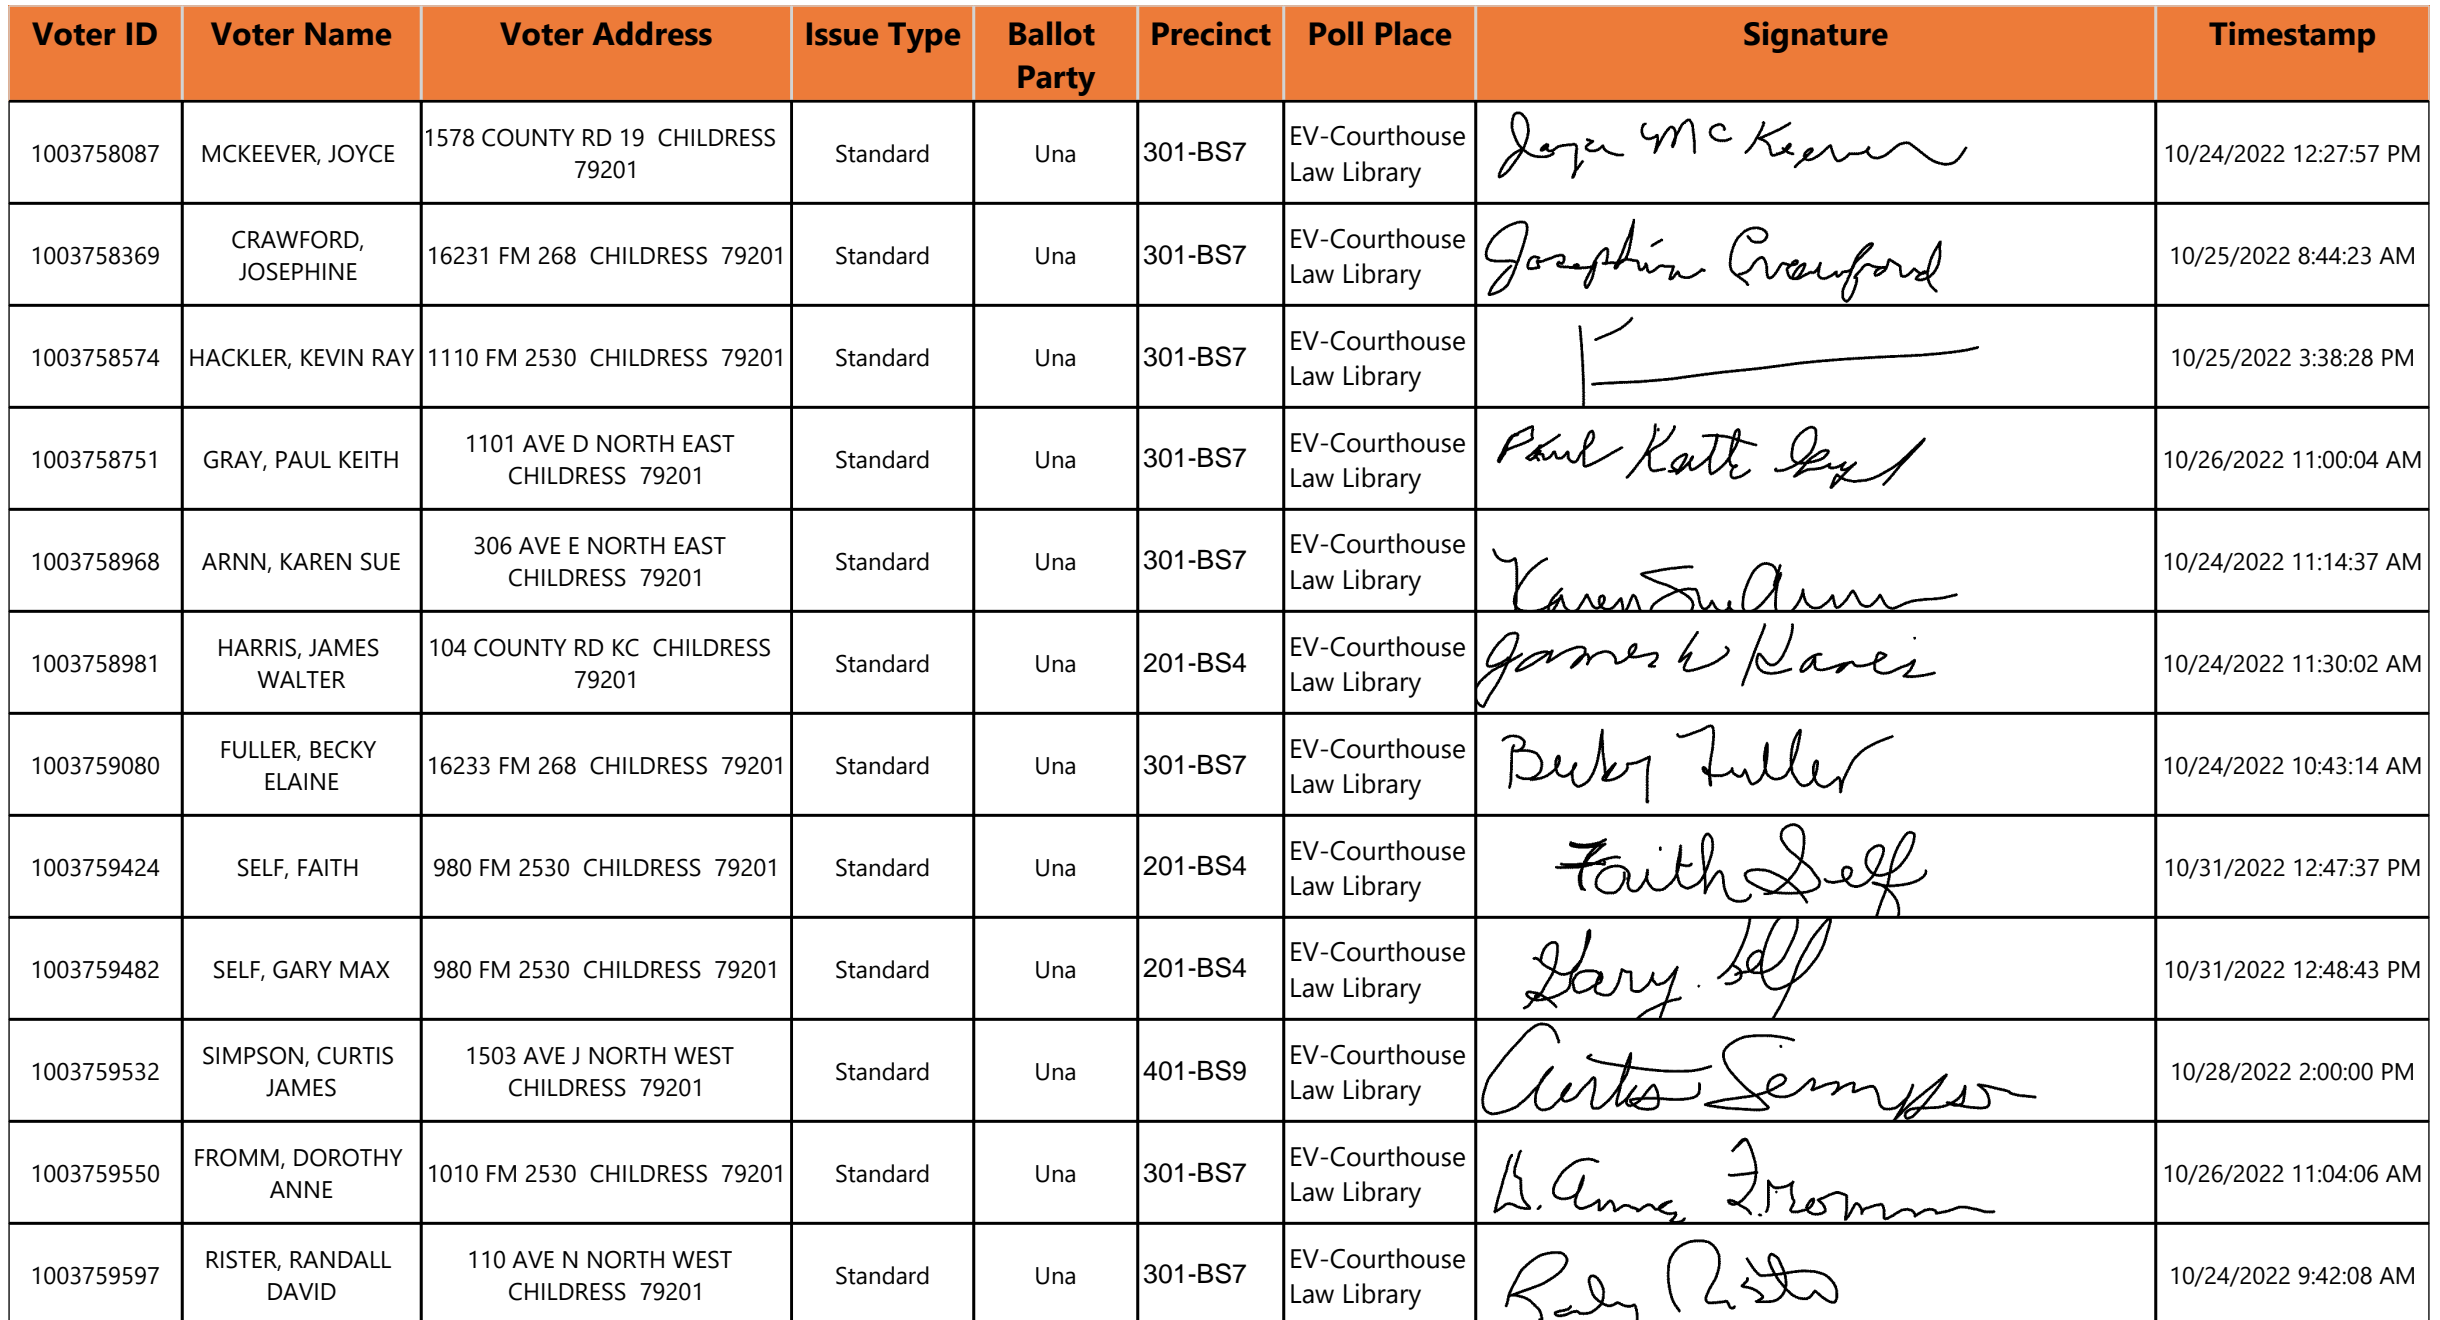 Voter ID Voter Name Voter Address Issue Type Ballot Party Precinct Poll Place Signature Timestamp
1003758087 MCKEEVER, JOYCE 1578 COUNTY RD 19 CHILDRESS 79201 Standard Una 301-BS7 EV-Courthouse Law Library Joyce McKeever 10/24/2022 12:27:57 PM
1003758369 CRAWFORD, JOSEPHINE 16231 FM 268 CHILDRESS 79201 Standard Una 301-BS7 EV-Courthouse Law Library Josephine Crawford 10/25/2022 8:44:23 AM
1003758574 HACKLER, KEVIN RAY 1110 FM 2530 CHILDRESS 79201 Standard Una 301-BS7 EV-Courthouse Law Library 10/25/2022 3:38:28 PM
1003758751 GRAY, PAUL KEITH 1101 AVE D NORTH EAST CHILDRESS 79201 Standard Una 301-BS7 EV-Courthouse Law Library Paul Keith Gray 10/26/2022 11:00:04 AM
1003758968 ARNN, KAREN SUE 306 AVE E NORTH EAST CHILDRESS 79201 Standard Una 301-BS7 EV-Courthouse Law Library Karen Sue Arnn 10/24/2022 11:14:37 AM
1003758981 HARRIS, JAMES WALTER 104 COUNTY RD KC CHILDRESS 79201 Standard Una 201-BS4 EV-Courthouse Law Library James W Harris 10/24/2022 11:30:02 AM
1003759080 FULLER, BECKY ELAINE 16233 FM 268 CHILDRESS 79201 Standard Una 301-BS7 EV-Courthouse Law Library Becky Fuller 10/24/2022 10:43:14 AM
1003759424 SELF, FAITH 980 FM 2530 CHILDRESS 79201 Standard Una 201-BS4 EV-Courthouse Law Library Faith Self 10/31/2022 12:47:37 PM
1003759482 SELF, GARY MAX 980 FM 2530 CHILDRESS 79201 Standard Una 201-BS4 EV-Courthouse Law Library Gary Self 10/31/2022 12:48:43 PM
1003759532 SIMPSON, CURTIS JAMES 1503 AVE J NORTH WEST CHILDRESS 79201 Standard Una 401-BS9 EV-Courthouse Law Library Curtis Simpson 10/28/2022 2:00:00 PM
1003759550 FROMM, DOROTHY ANNE 1010 FM 2530 CHILDRESS 79201 Standard Una 301-BS7 EV-Courthouse Law Library D. Anne Fromm 10/26/2022 11:04:06 AM
1003759597 RISTER, RANDALL DAVID 110 AVE N NORTH WEST CHILDRESS 79201 Standard Una 301-BS7 EV-Courthouse Law Library Rister 10/24/2022 9:42:08 AM